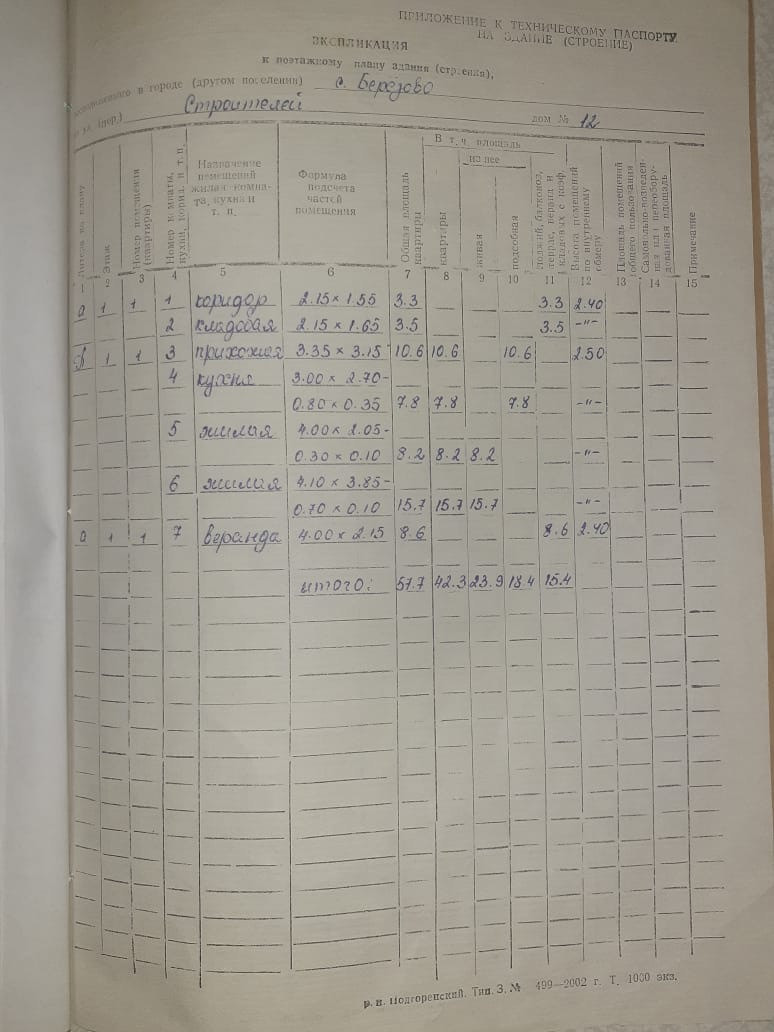 ПРИЛОЖЕНИЕ К ТЕХНИЧЕСКОМУ ПАСПОРТУ
НА ЗДАНИЕ (СТРОЕНИЕ)
ЭКСПЛИКАЦИЯ
к поэтажному плану здания (строения),
расположенного в городе (другом поселении) с. Берёзово
по ул. (пер.) Строителей дом № 12
Литера по плану
Этаж
Номер помещения (квартиры)
Номер комнаты, кухни, корид. и т. п.
Назначение помещений жилая комната, кухня и т. п.
Формула подсчета частей помещения
Общая площадь квартиры
В т. ч. площадь
квартиры
из нее
жилая
подсобная
Лоджий, балконов, террас, веранд и кладовых с коэф.
Высота помещений по внутреннему обмеру
Площадь помещений общего пользования
Самовольно возведенная или переоборудованная площадь
Примечание
1 2 3 4 5 6 7 8 9 10 11 12 13 14 15
а 1 1 1 коридор 2.15 × 1.55 3.3 3.3 2.40
2 кладовая 2.15 × 1.65 3.5 3.5 -"-
1 1 3 прихожая 3.35 × 3.15 10.6 10.6 10.6 2.50
4 кухня 3.00 × 2.70-
0.80 × 0.35 7.8 7.8 7.8 -"-
5 жилая 4.00 × 2.05-
0.30 × 0.10 8.2 8.2 8.2 -"-
6 жилая 4.10 × 3.85-
0.70 × 0.10 15.7 15.7 15.7 -"-
а 1 1 7 веранда 4.00 × 2.15 8.6 8.6 2.40
итого: 57.7 42.3 23.9 18.4 15.4
р. п. Подгоренский. Тип. З. № 499—2002 г. Т. 1000 экз.